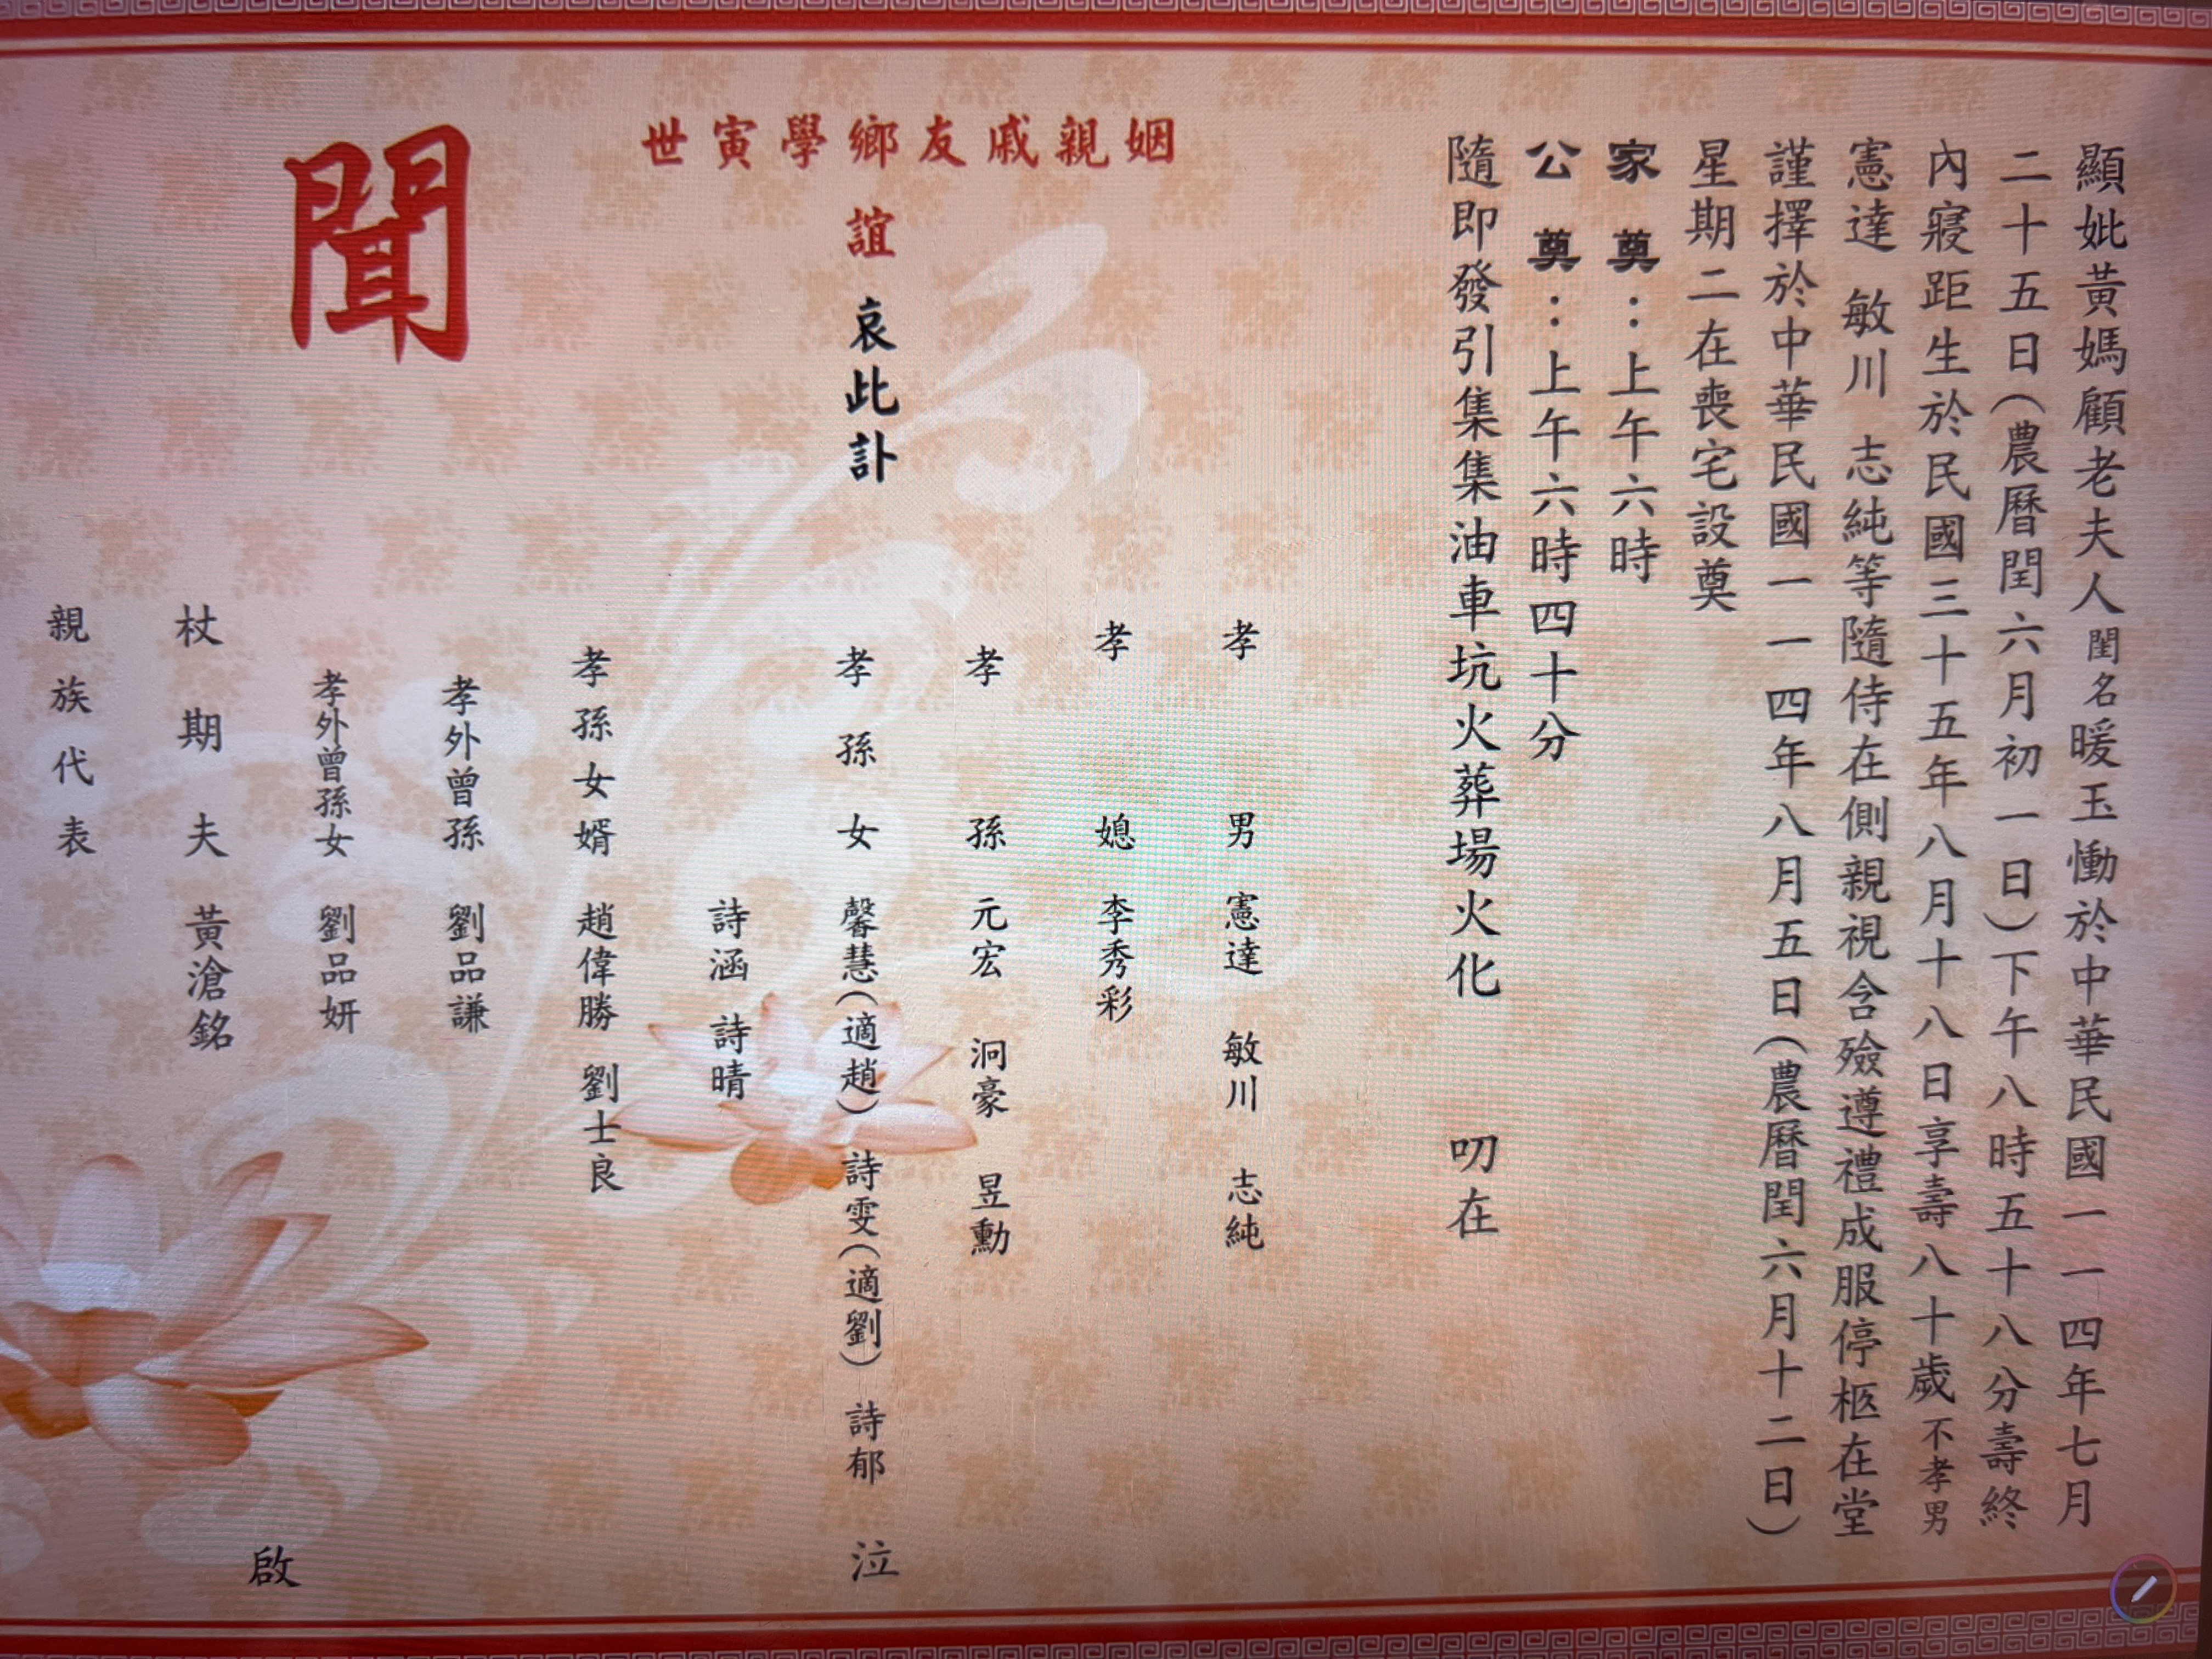 顯妣黃媽顧老夫人閨名暖玉慟於中華民國一一四年七月
二十五日(農曆閏六月初一日)下午八時五十八分壽終
內寢距生於民國三十五年八月十八日享壽八十歲不孝男
憲達 敏川 志純等隨侍在側親視含殮遵禮成服停柩在堂
謹擇於中華民國一一四年八月五日(農曆閏六月十二日)
星期二在喪宅設奠
家奠:上午六時
公奠:上午六時四十分
隨即發引集集油車坑火葬場火化 叨在
姻親戚友鄉學寅世
誼 哀此訃
聞
孝男 憲達 敏川 志純
孝媳 李秀彩
孝孫 元宏 泂豪 昱勳
孝孫女 馨慧(適趙) 詩雯(適劉) 詩郁 泣
詩涵 詩晴
孝孫女婿 趙偉勝 劉士良
孝外曾孫 劉品謙
孝外曾孫女 劉品妍
啟
杖期夫 黃滄銘
親族代表